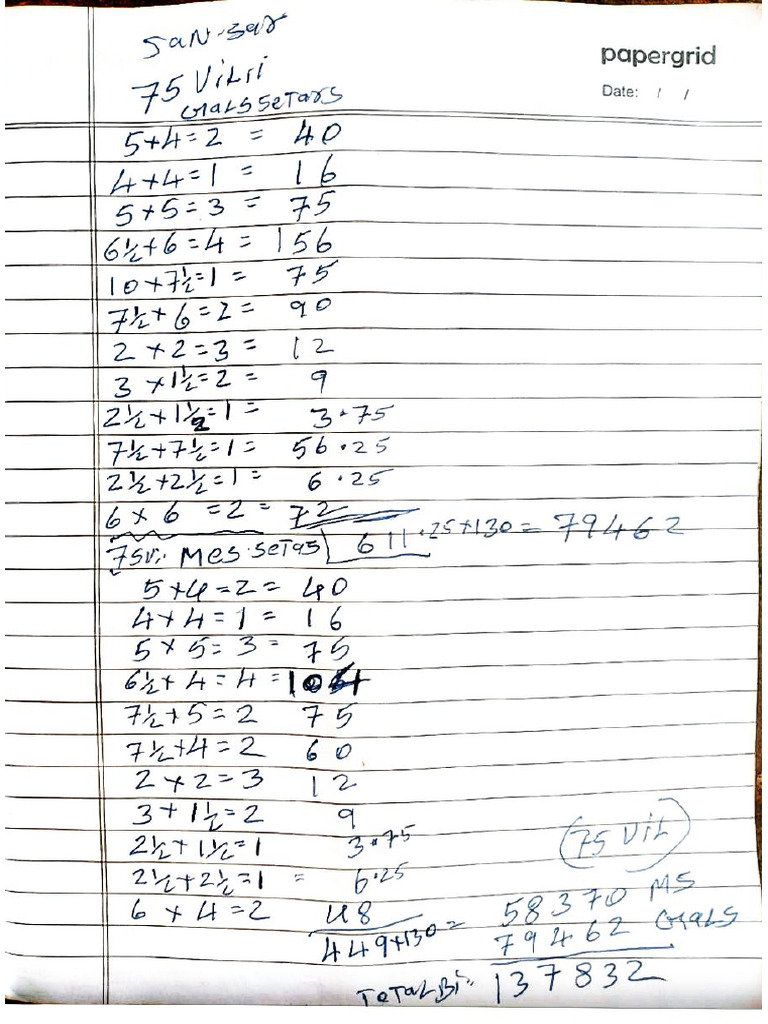 SaN-Bar
papergrid
75 Vitri
Date: / /
GlaLS SeTars
5+4=2 = 40
4+4=1 = 16
5+5=3 = 75
6½+6=4 = 156
10+7½=1 = 75
7½+6=2= 90
2 × 2=3= 12
3 ×1½=2= 9
2½+1½=1= 3.75
7½+7½=1= 56.25
2½+2½=1= 6.25
6 × 6 =2= 72
MeS SeTas 611.25+130= 79462
5+4=2= 40
4+4=1= 16
5×5=3= 75
6½+4=4=104
7½+5=2 75
7½+4=2 60
2×2=3 12
3+1½=2 9
2½+1½=1 3.75
2½+2½=1 = 6.25
75 ViL
6×4=2 48
449+130= 58370 MS
79462 GlaLS
ToTaL Bi= 137832